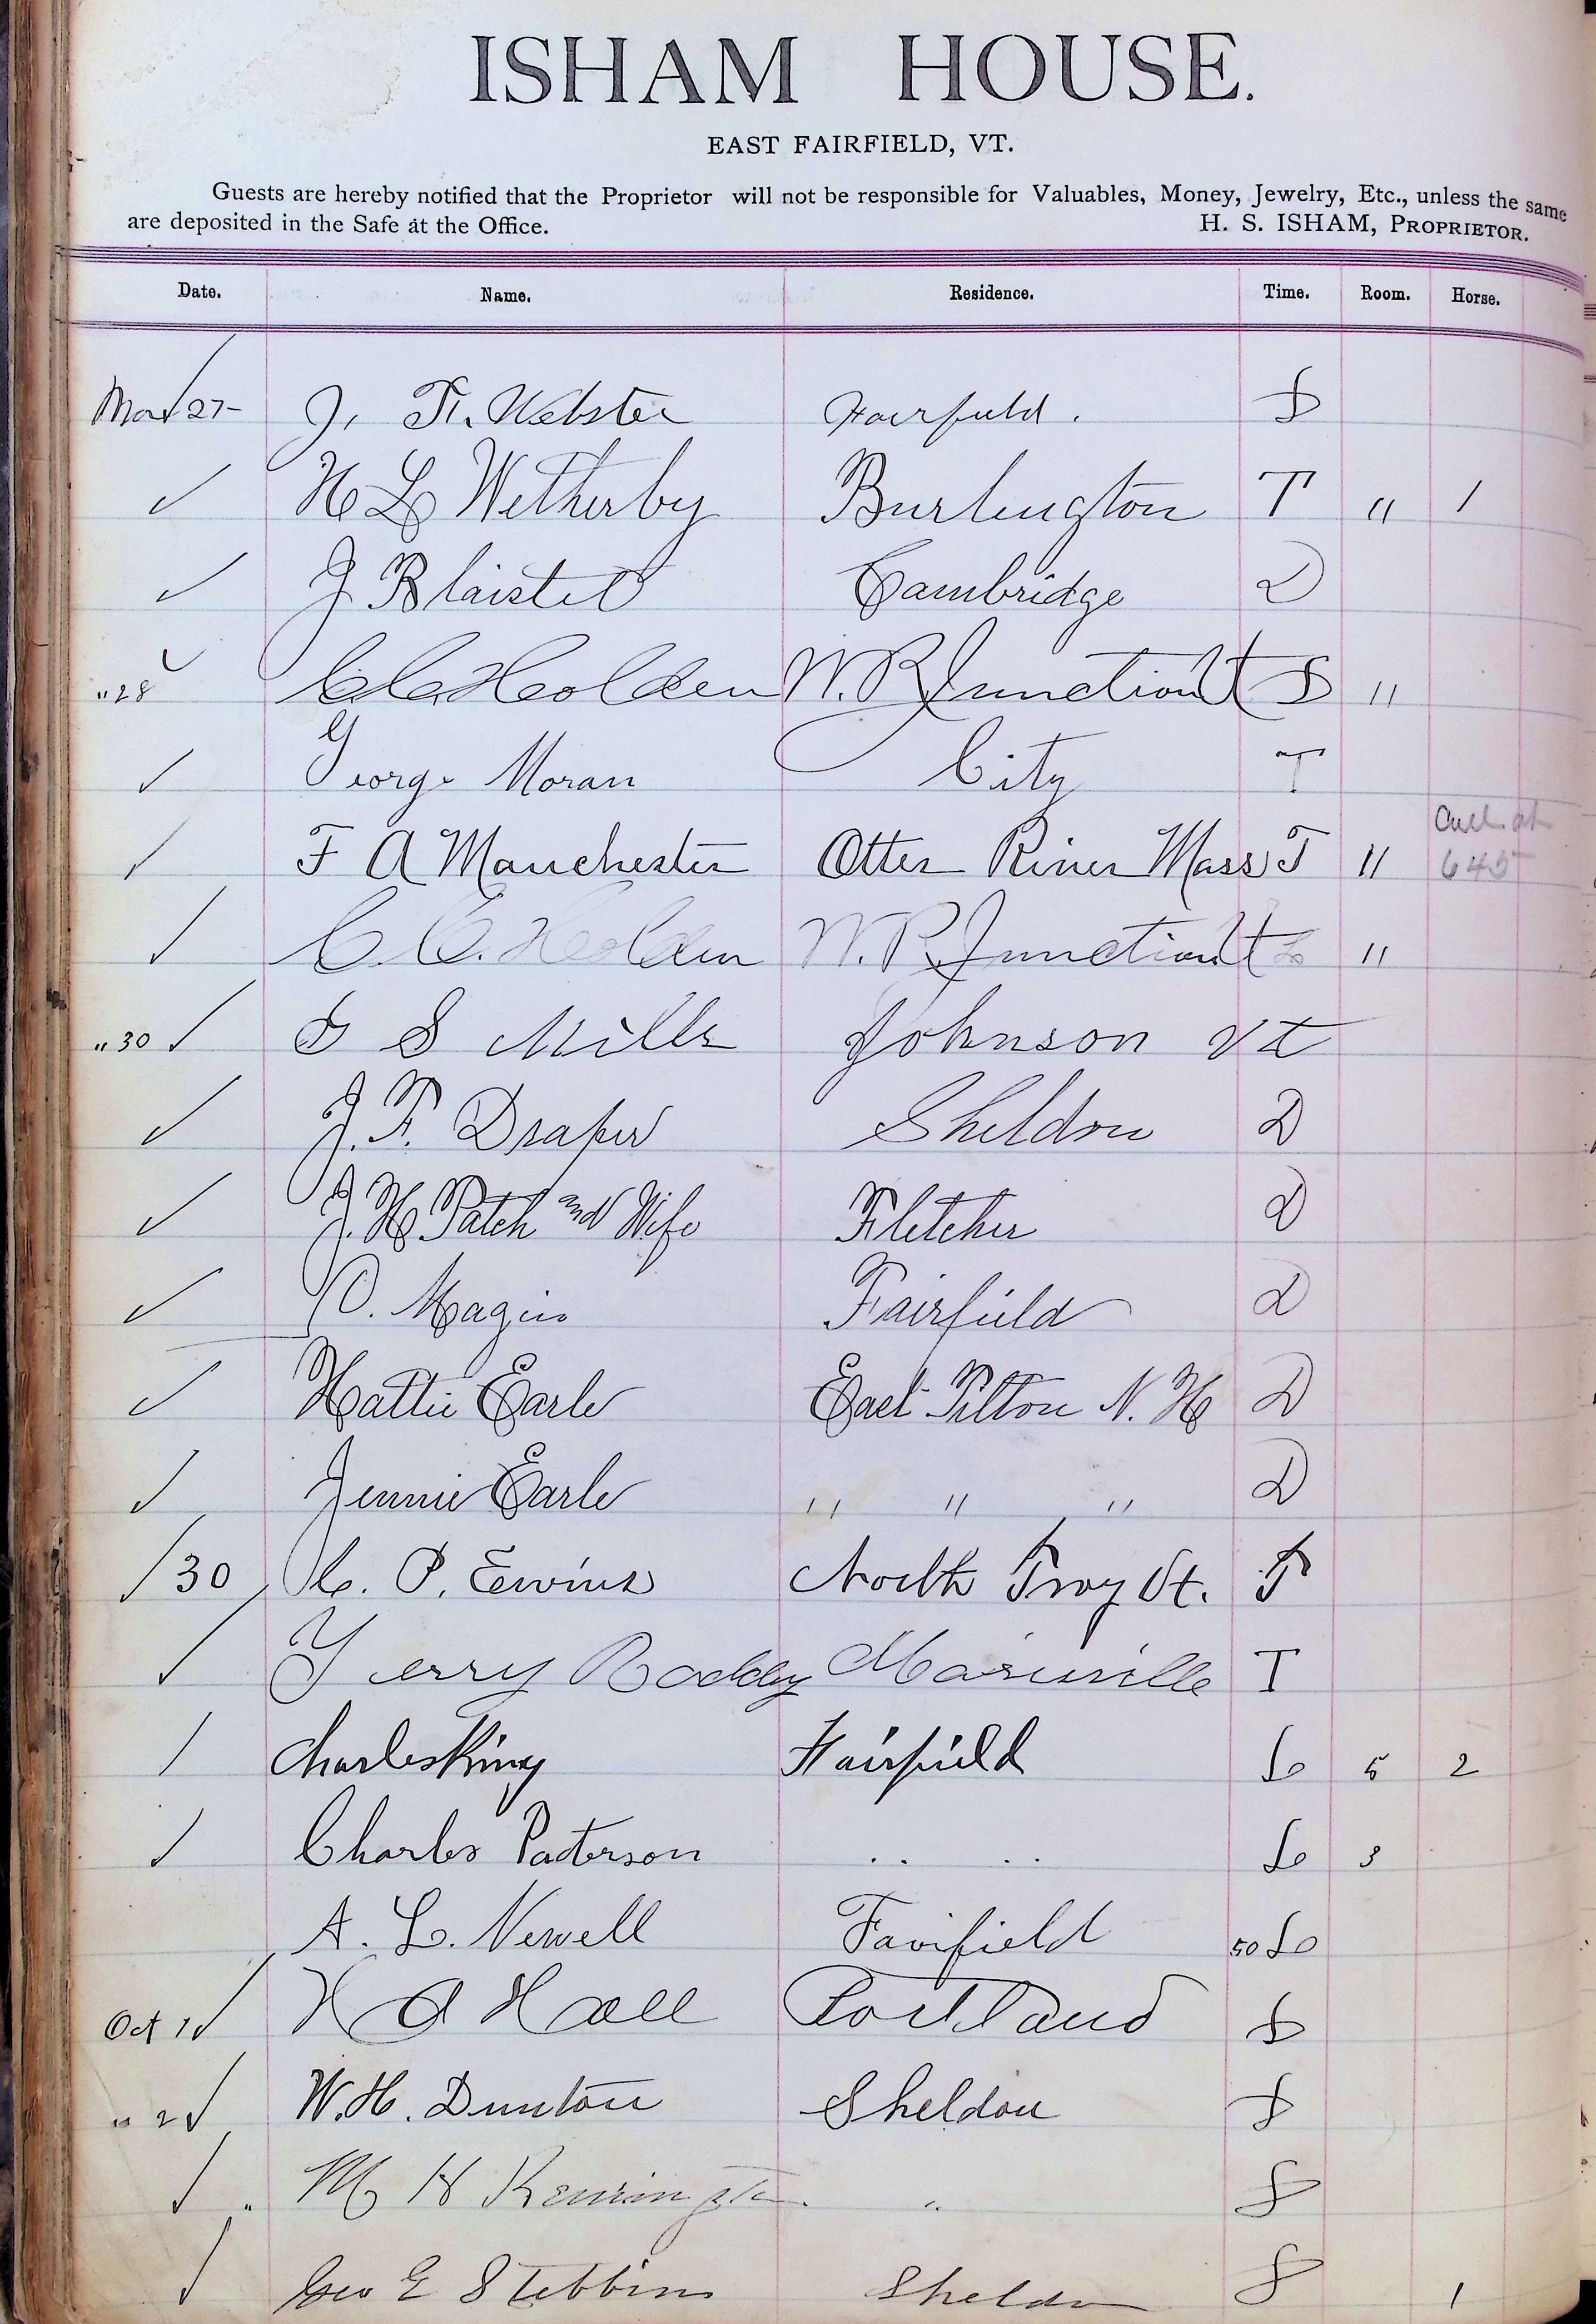 ISHAM HOUSE.
EAST FAIRFIELD, VT.
Guests are hereby notified that the Proprietor will not be responsible for Valuables, Money, Jewelry, Etc., unless the same
are deposited in the Safe at the Office. H. S. ISHAM, PROPRIETOR.
Date. Name. Residence. Time. Room. Horse.
27- J. Webster Fairfield. D
✓ H L Wetherby Burlington T " 1
✓ J Cambridge D
" 28 ✓ C C Holden W. R. Junction Vt "
✓ George Moran City T
✓ F A Manchester Otter River Mass T " 645
✓ C. C. Holden W. R. Junction Vt Lo "
" 30 ✓ G S Mills Johnson Vt
✓ J. F. Draper Sheldon D
✓ J. H. Patch and Wife Fletcher D
✓ Magin Fairfield D
✓ Hattie Earle East Tilton N. H D
✓ Jennie Earle " " " D
✓ 30 C. P. North Troy Vt. T
✓ T
✓ Charles King Fairfield Lo 5 2
✓ Charles Paterson .. .. Lo 3
A. L. Newell Fairfield 50 Lo
Oct 1 ✓ H A Hall Portland
" 2 ✓ W. H. Dunton Sheldon
✓ " M H "
✓ Geo E Stebbins Sheldon 1